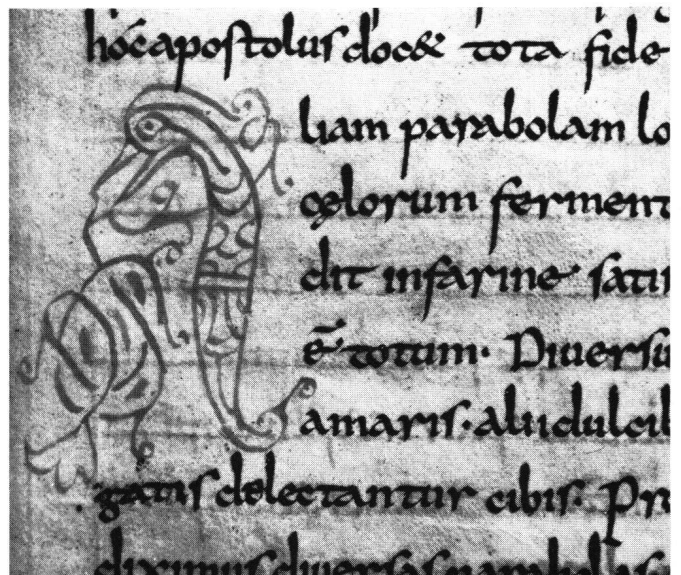 hóc apostolus doc& tota fide
Aliam parabolam lo
cęlorum ferment
dit infarine sati
ē totum· Diuersi
amaris· alii dulcib
gatis delectantur cibis· Pr
diximus diuersas parabolas